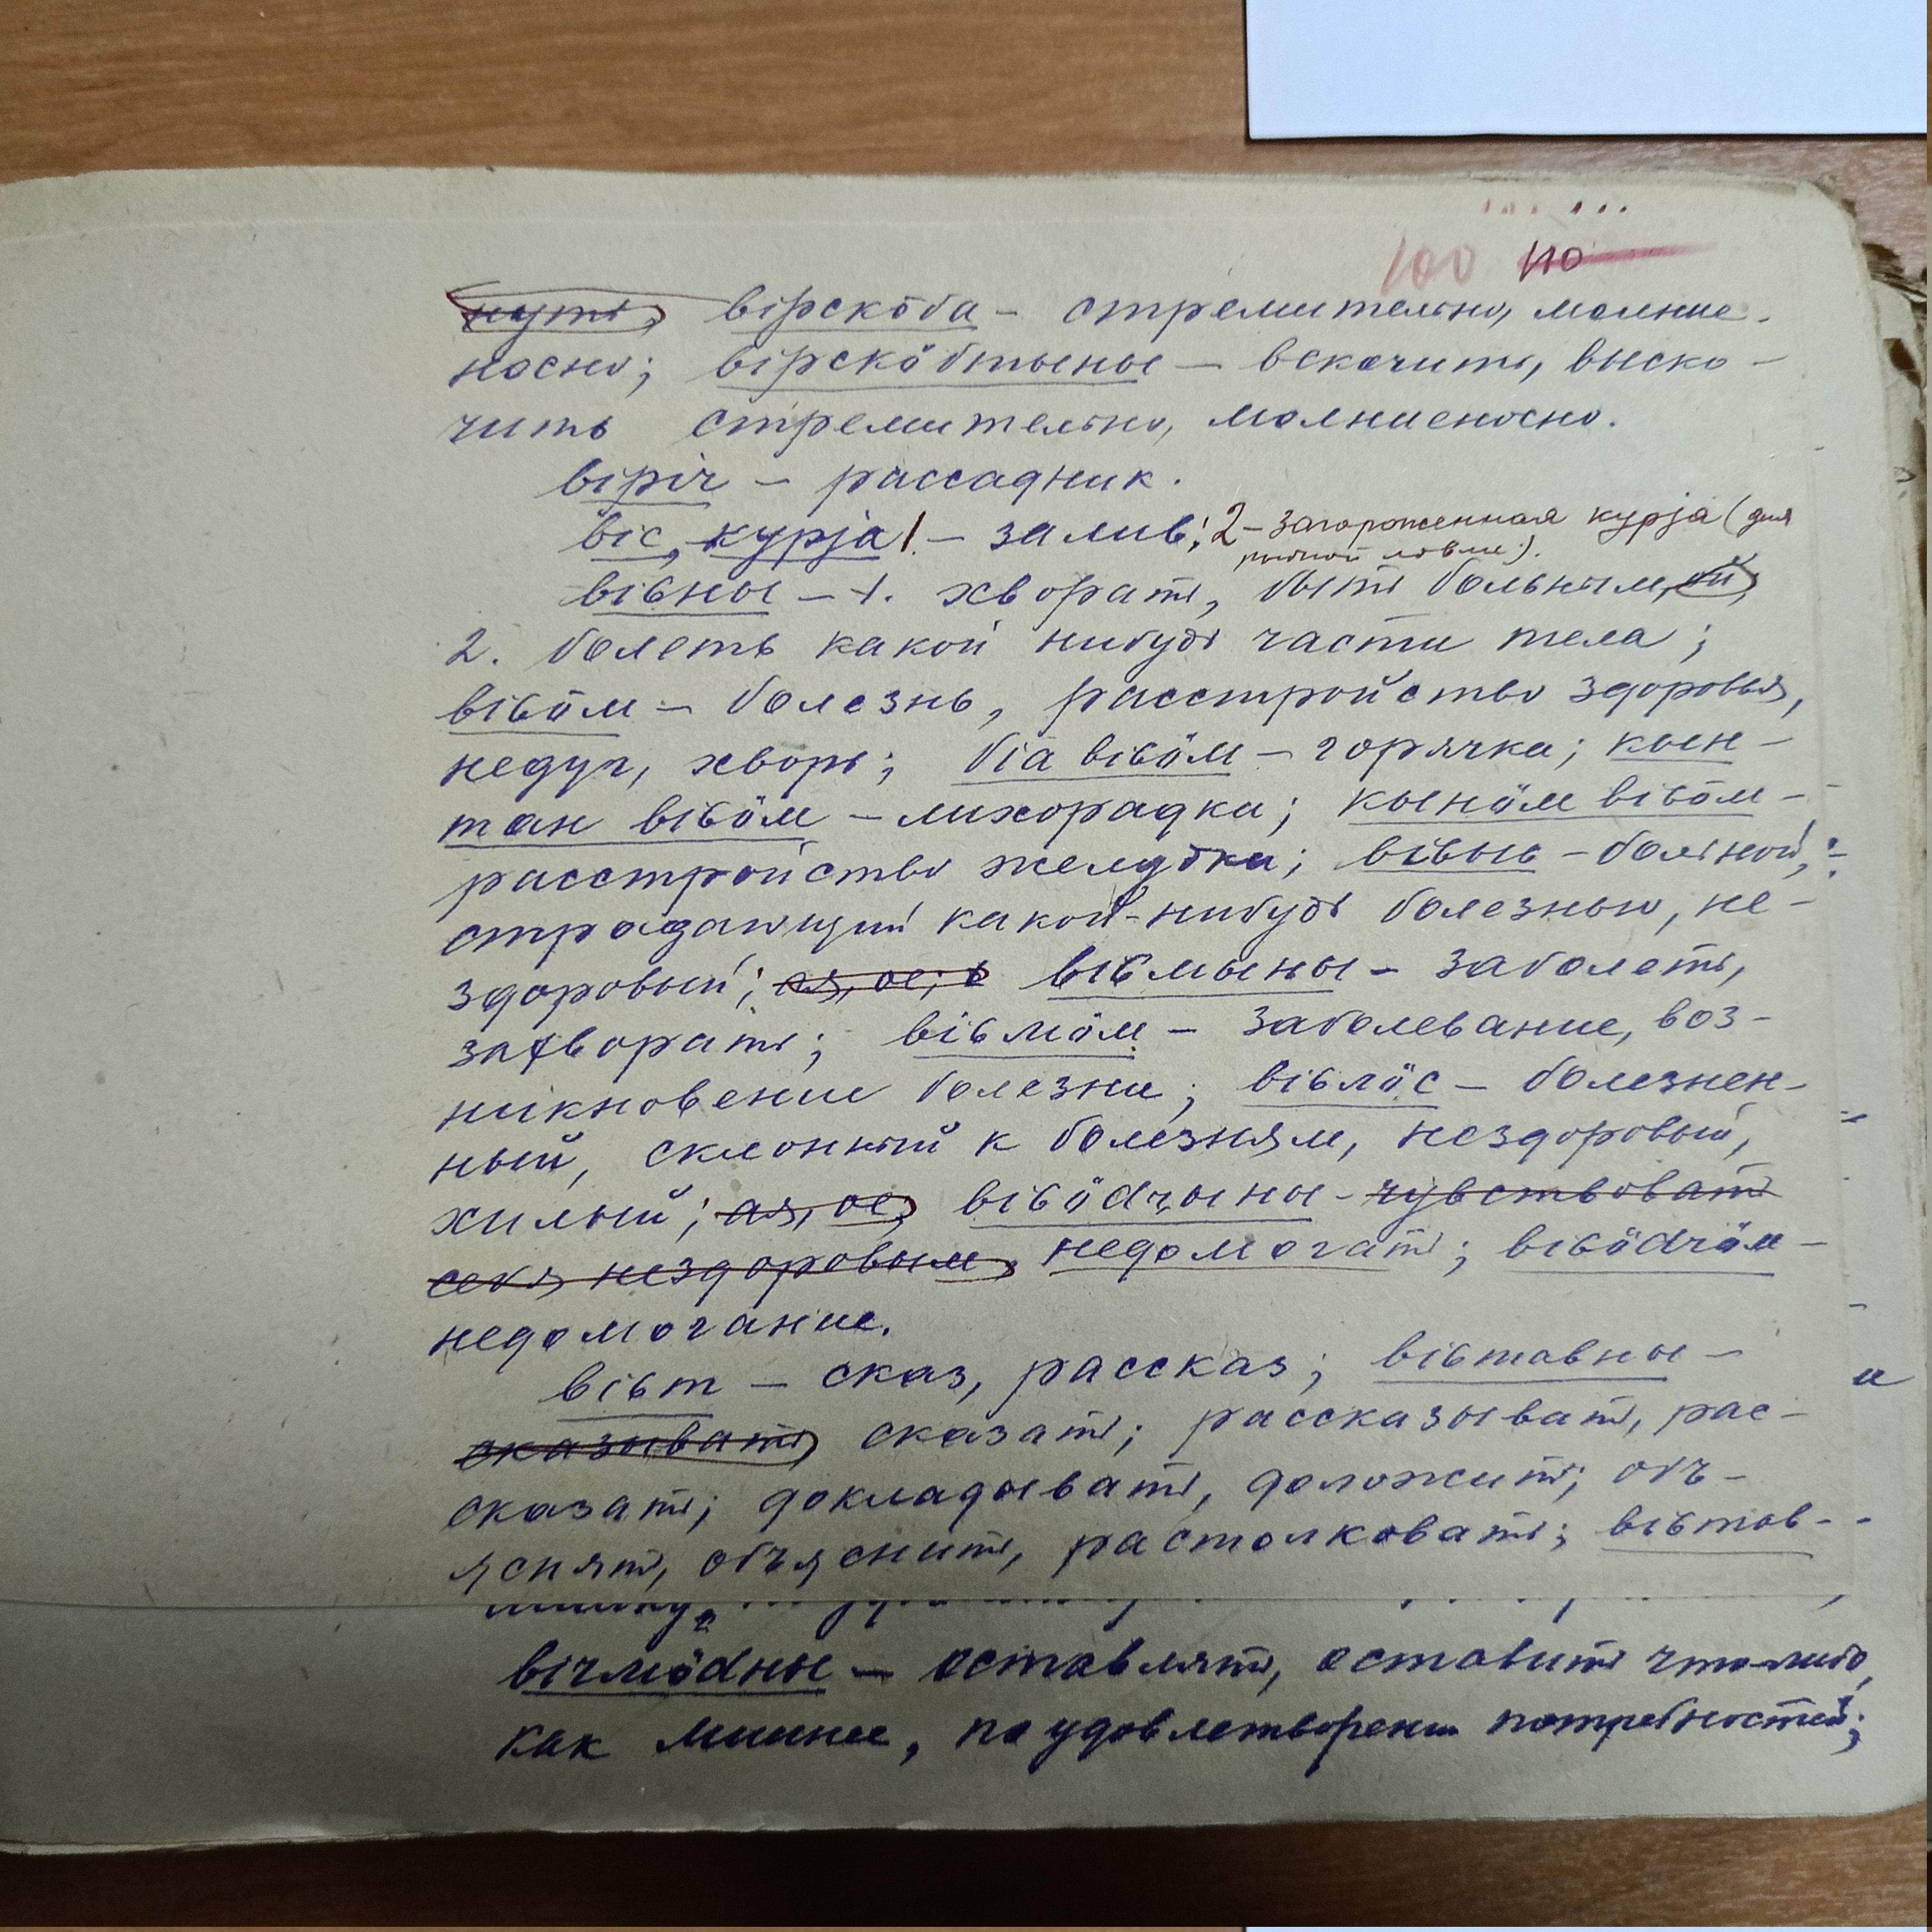 100 110
нуть, вірскӧба – стремительно, молние-
носно; вірскӧбтыны – вскочить, выско-
чить стремительно, молниеносно.
віріч – рассадник.
віс, курја 1. – залив; 2 – загороженная курја (для
рыбной ловли).
віԍны – 1. хворать, быть больным, ой,
2. болеть какой нибудь части тела;
віԍӧм – болезнь, расстройство здоровья,
недуг, хворь; біа віԍӧм – горячка; кын-
тан віԍӧм – лихорадка; кынӧм віԍӧм –
расстройство желудка; віԍыԍ – больной,
страдающий какой-нибудь болезнью, не-
здоровый; ая, ое; віԍмыны – заболеть,
захворать; віԍмӧм – заболевание, воз-
никновение болезни; віԍлӧс – болезнен-
ный, склонный к болезням, нездоровый,
хилый; ая, ое; віԍӧdчыны – чувствовать
себя нездоровым, недомогать; віԍӧdчӧм –
недомогание.
віԍт – сказ, рассказ; віԍтавны –
сказывать, сказать; рассказывать, рас-
сказать; докладывать, доложить; объ-
яснять, объяснить, растолковать; віԍтав-
вічмӧdны – оставлять, оставить что-либо,
как лишнее, по удовлетворении потребностей;